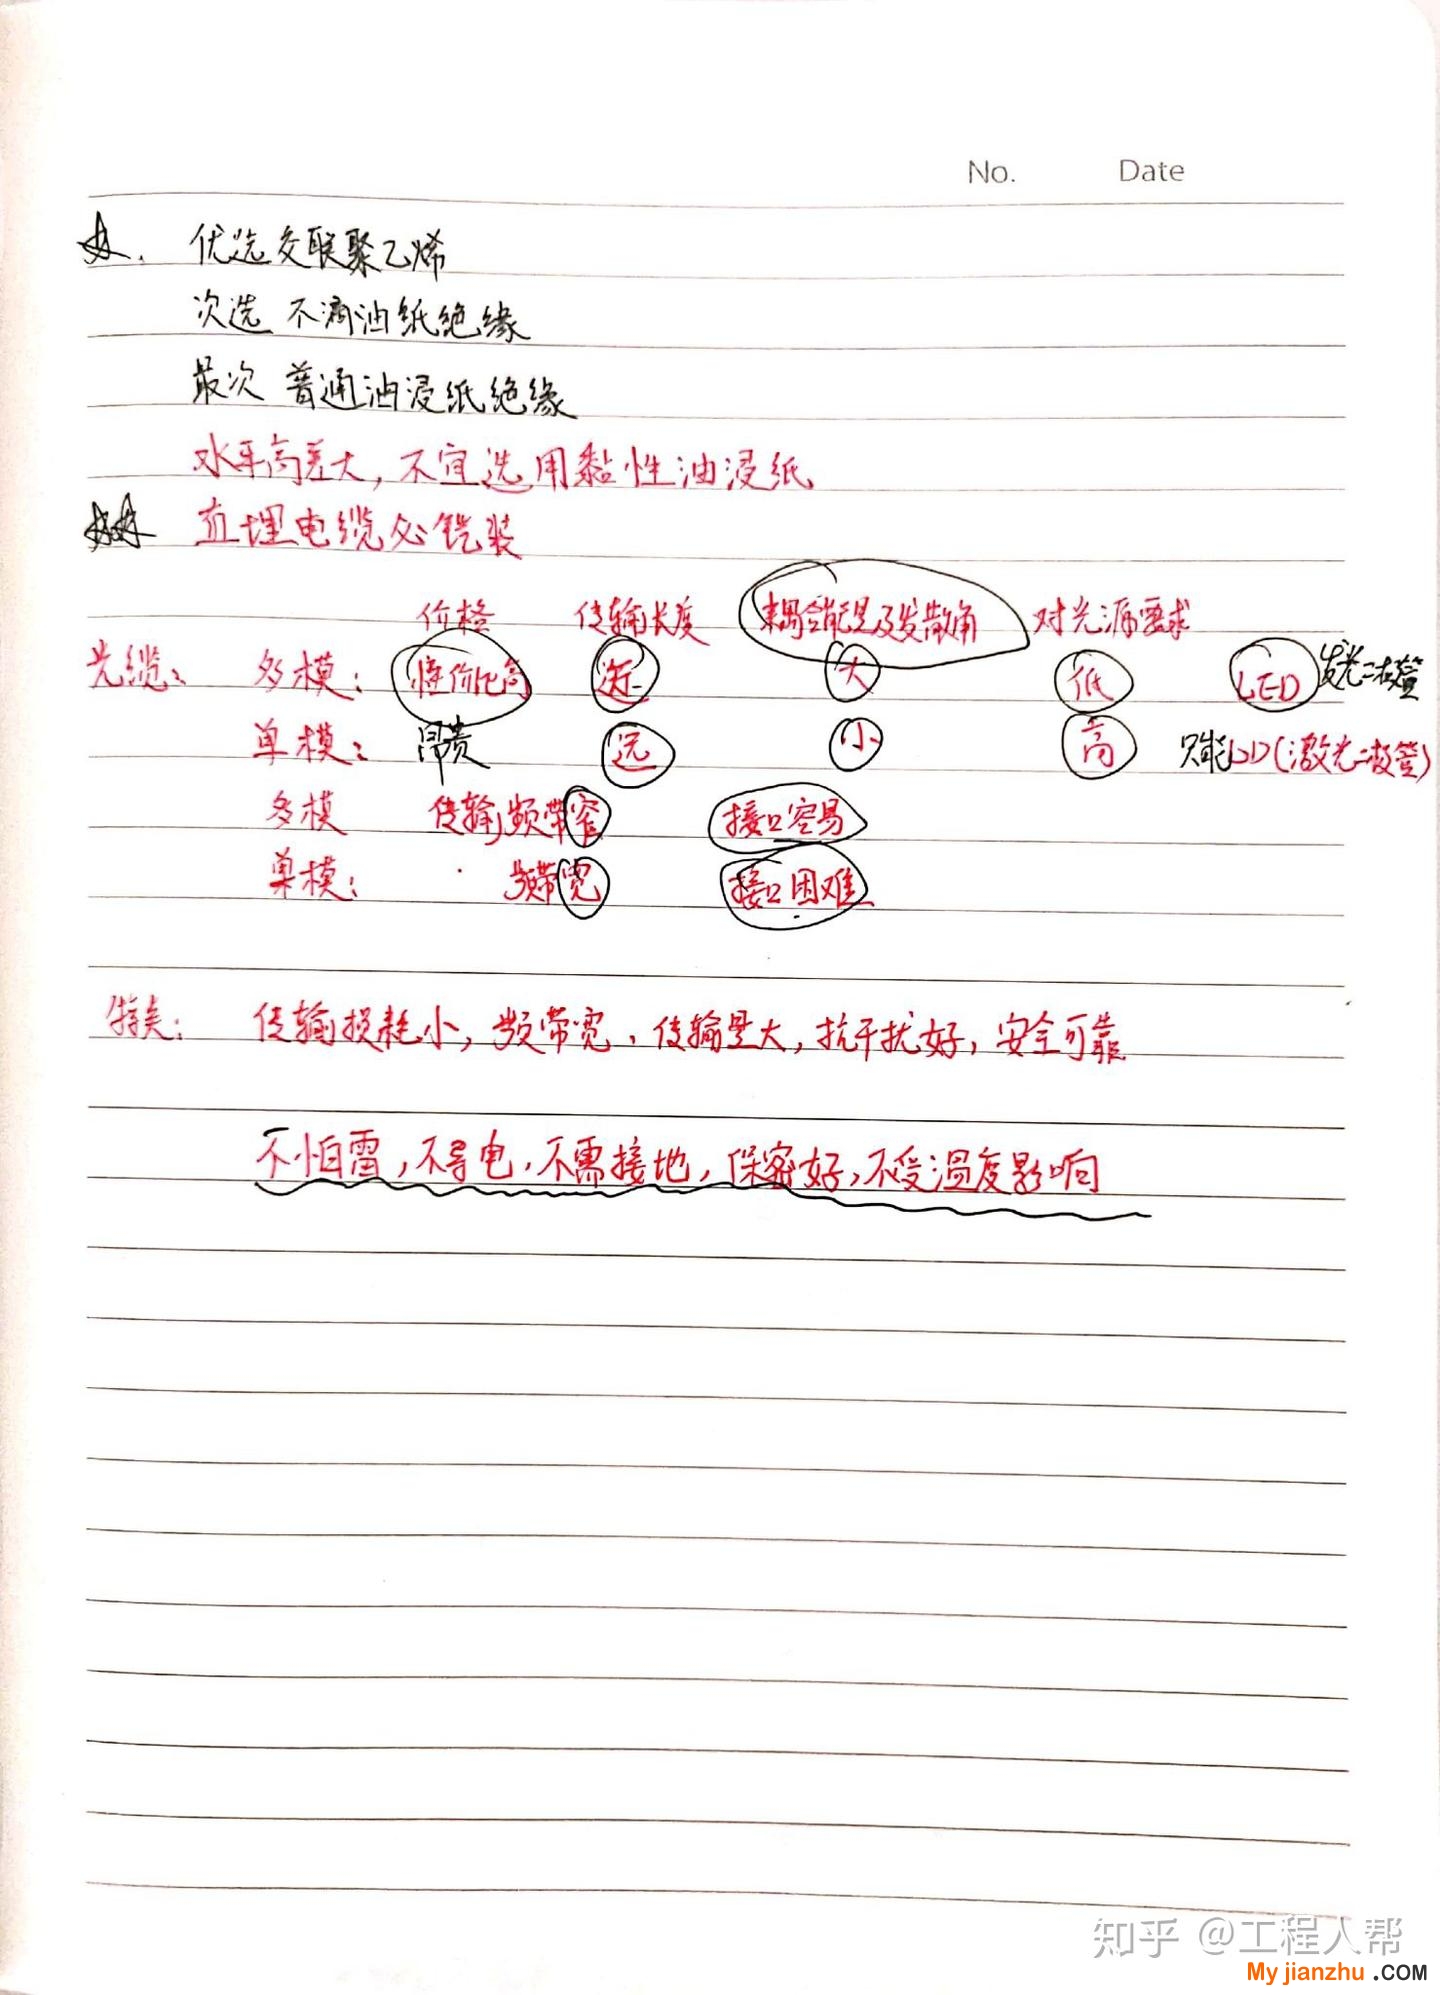 No. Date
优选交联聚乙烯
次选 不滴油纸绝缘
最次 普通油浸纸绝缘
水平高差大,不宜选用黏性油浸纸
直埋电缆必铠装
价格 传输长度 耦合能量及发散角 对光源要求
光缆: 多模: 性价比高 近 大 低 LED 发光二极管
单模: 昂贵 远 小 高 只能LD(激光二极管)
多模 传输频带窄 接口容易
单模: 频带宽 接口困难
特点: 传输损耗小,频带宽,传输量大,抗干扰好,安全可靠
不怕雷,不导电,不需接地,保密好,不受温度影响
知乎 @工程人帮
Myjianzhu.COM